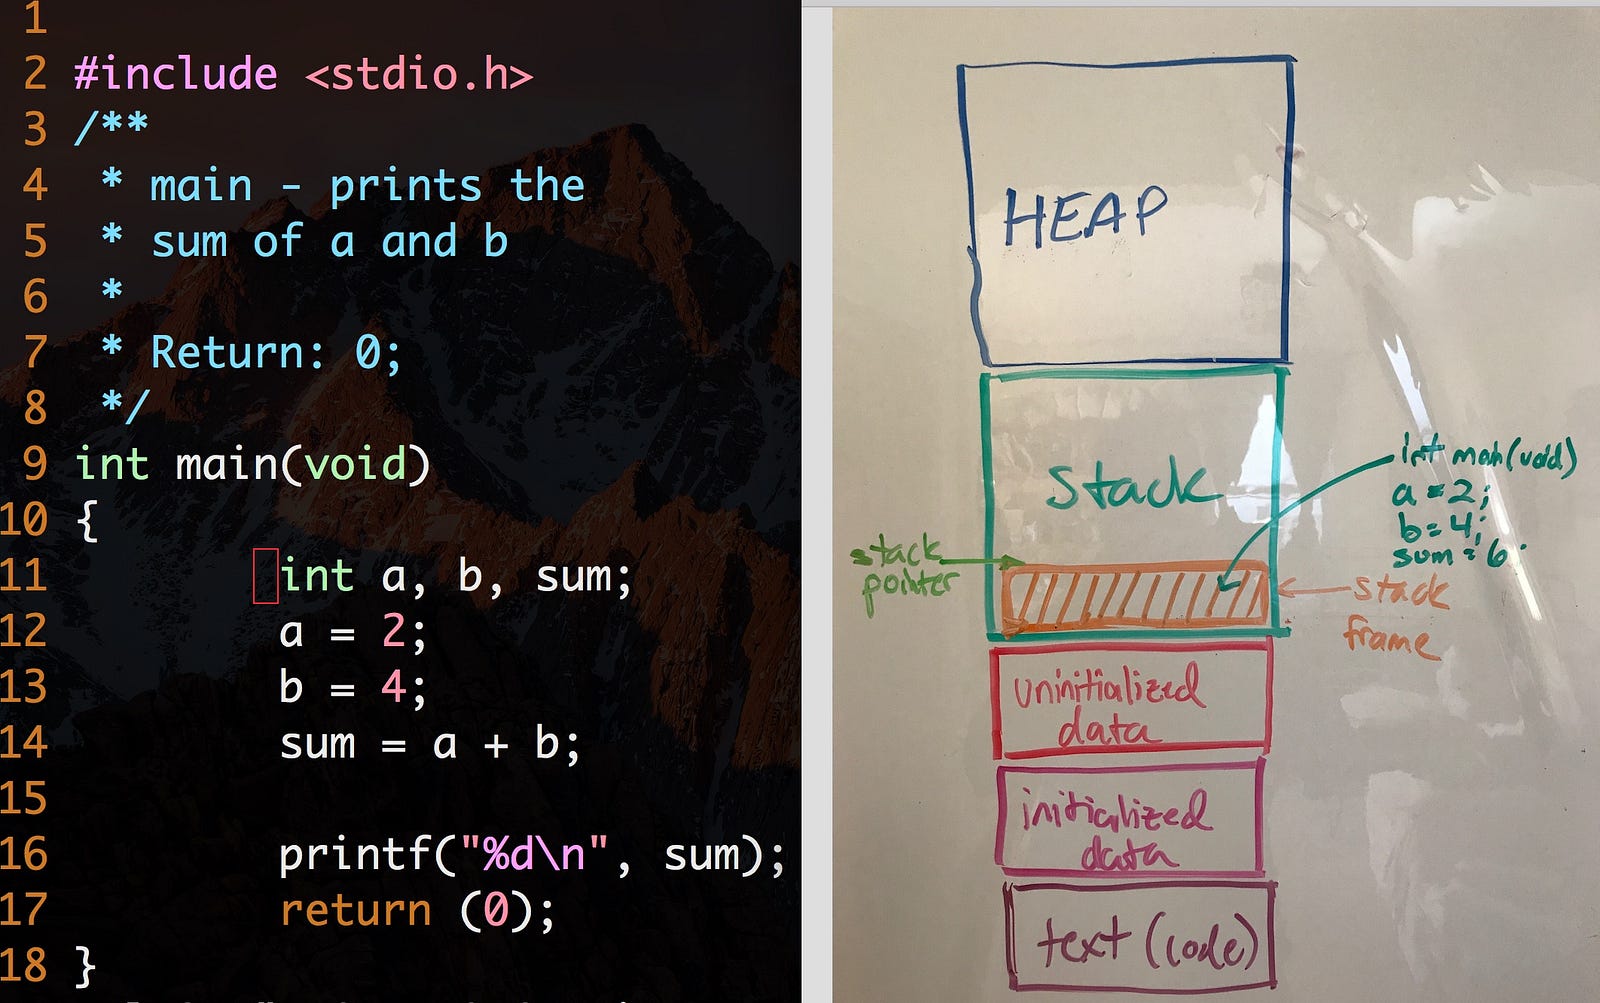 1
2 #include <stdio.h>
3 /**
4  * main - prints the
5  * sum of a and b
6  *
7  * Return: 0;
8  */
9 int main(void)
10 {
11         int a, b, sum;
12         a = 2;
13         b = 4;
14         sum = a + b;
15
16         printf("%d\n", sum);
17         return (0);
18 }
HEAP
stack
int main(void)
a = 2;
b = 4;
sum = 6
stack
pointer
stack
frame
uninitialized
data
initialized
data
text (code)